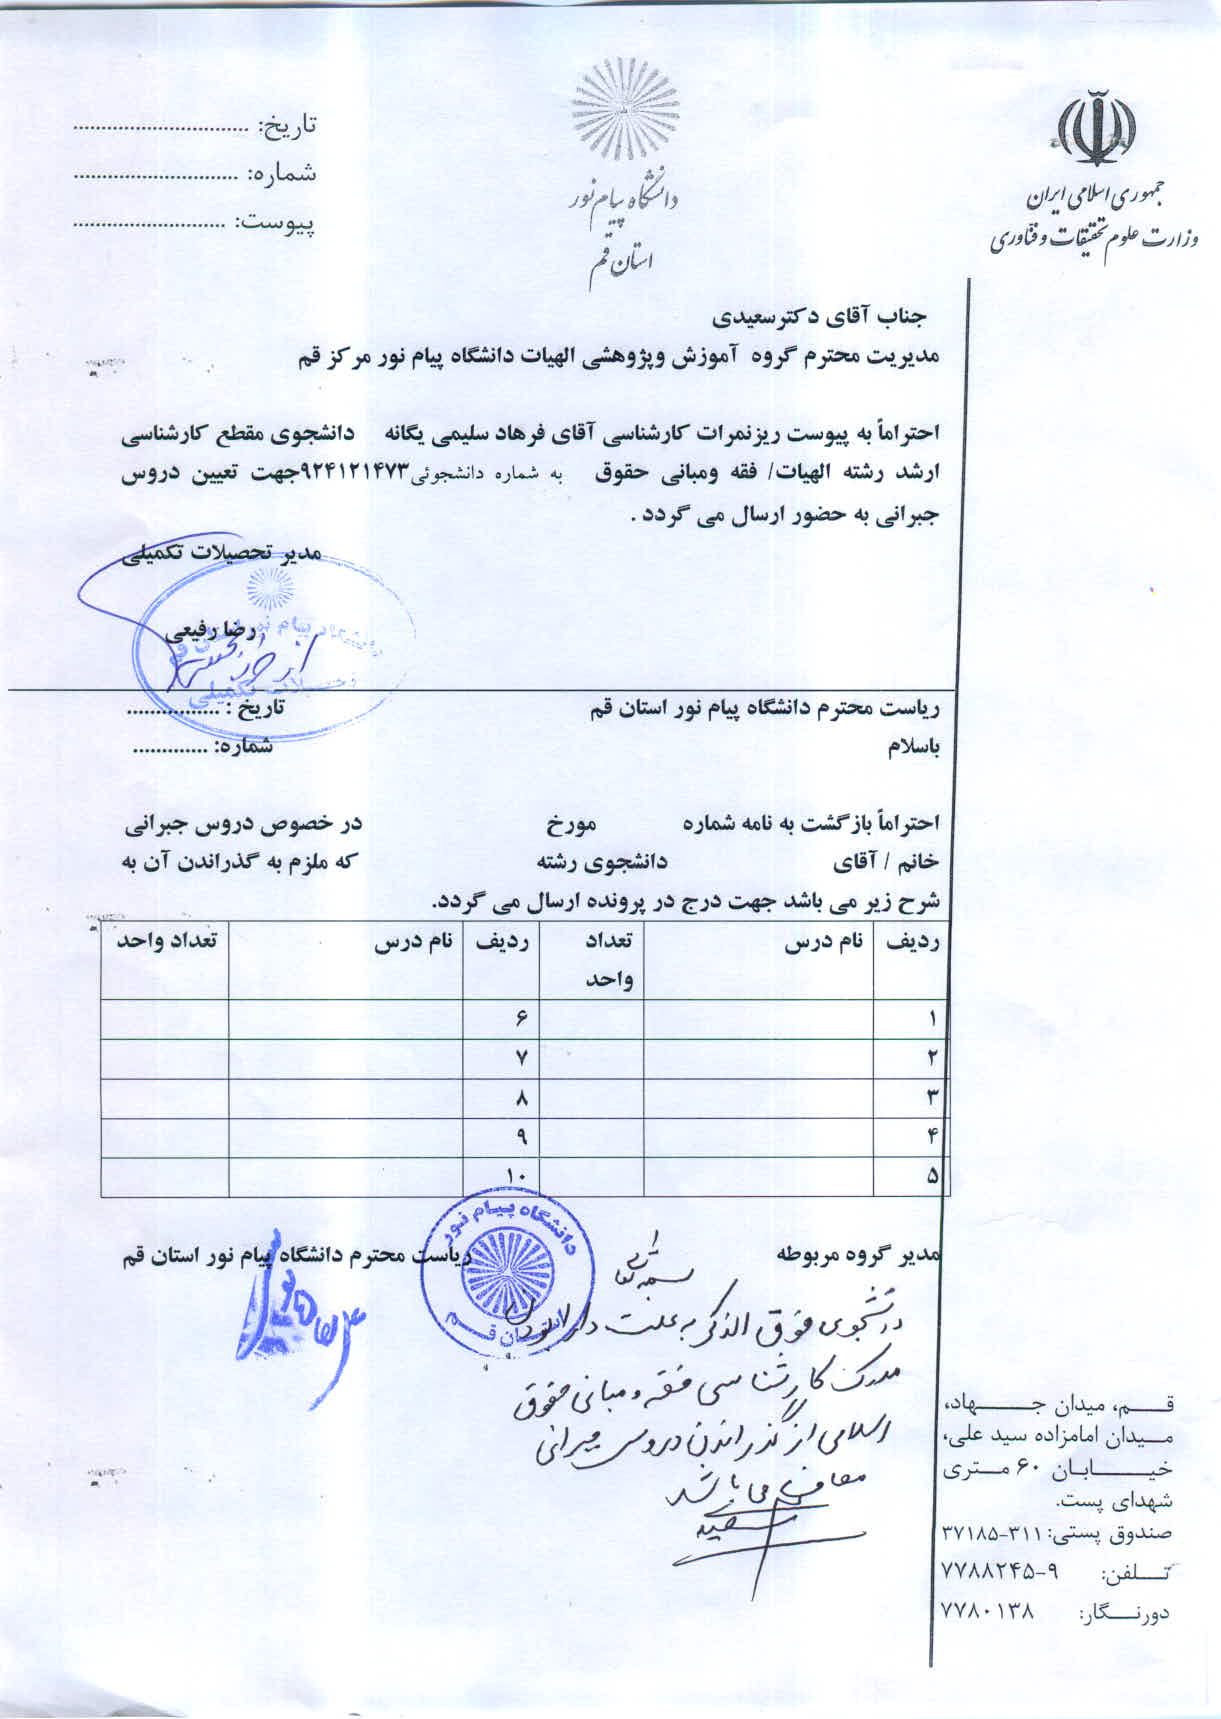 جمهوری اسلامی ایران
وزارت علوم تحقیقات و فنّاوری
دانشگاه پیام نور
استان قم
تاریخ: ................................
شماره: ..............................
پیوست: ............................
جناب آقای دکترسعیدی
مدیریت محترم گروه آموزش وپژوهشی الهیات دانشگاه پیام نور مرکز قم
احتراماً به پیوست ریزنمرات کارشناسی آقای فرهاد سلیمی یگانه دانشجوی مقطع کارشناسی
ارشد رشته الهیات/ فقه ومبانی حقوق به شماره دانشجوئی۹۲۴۱۲۱۴۷۳جهت تعیین دروس
جبرانی به حضور ارسال می گردد .
مدیر تحصیلات تکمیلی
رضا رفیعی
دانشگاه پیام نور استان قم
تحصیلات تکمیلی
ریاست محترم دانشگاه پیام نور استان قم تاریخ : .................
باسلام شماره: .............
احتراماً بازگشت به نامه شماره مورخ در خصوص دروس جبرانی
خانم / آقای دانشجوی رشته که ملزم به گذراندن آن به
شرح زیر می باشد جهت درج در پرونده ارسال می گردد.
ردیف نام درس تعداد واحد ردیف نام درس تعداد واحد
۱ ۶
۲ ۷
۳ ۸
۴ ۹
۵ ۱۰
مدیر گروه مربوطه ریاست محترم دانشگاه پیام نور استان قم
دانشگاه پیام نور
استان قم
بسمه تعالی
دانشجوی فوق الذکر به علت دارا بودن
مدرک کارشناسی فقه و مبانی حقوق
اسلامی از گذراندن دروس جبرانی
معاف می باشد
قـــم، میدان جـــــهاد،
میـدان امامزاده سید علی،
خیـــــابـان ۶۰ متـری
شهدای پست.
صندوق پستی: ۳۱۱-۳۷۱۸۵
تـــلفن: ۹-۷۷۸۸۲۴۵
دورنــگار: ۷۷۸۰۱۳۸